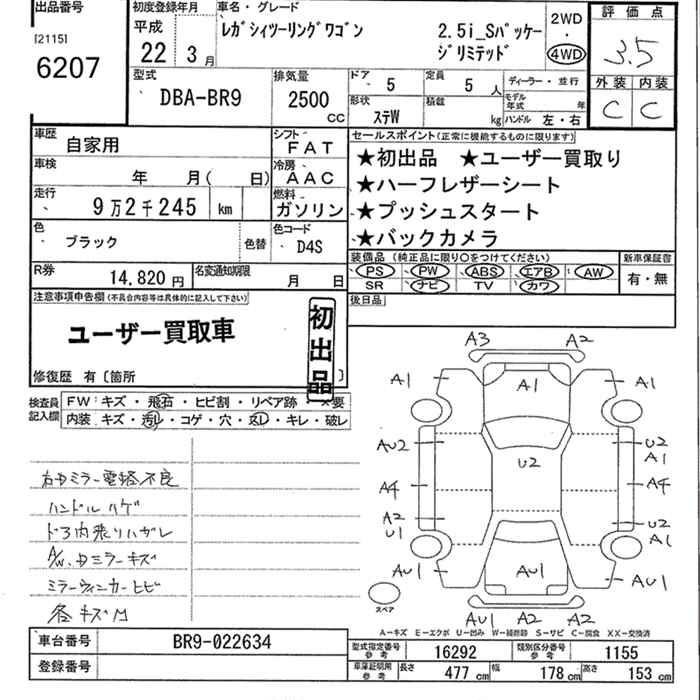 出品番号
[2115]
6207
初度登録年月
平成
22 3 月
車名・グレード
レガシィツーリングワゴン
2.5i_Sパッケー
ジリミテッド
2WD
・
4WD
評価点
3.5
外装 内装
C C
型式
DBA-BR9
排気量
2500
CC
ドア 5
定員 5 人
形状 ステW
積載 kg
ディーラー・並行
モデル年式 年
ハンドル 左・右
車歴 自家用
シフト FAT
車検 年 月( 日)
冷房 AAC
走行 9万2千245 km
燃料 ガソリン
色 ブラック
色替
色コード D4S
R券 14,820 円
名変通知期限 月 日
セールスポイント(正常に機能するものに限ります)
★初出品 ★ユーザー買取り
★ハーフレザーシート
★プッシュスタート
★バックカメラ
装備品 (純正品に限り○をつけてください)
PS PW ABS エアB AW
SR ナビ TV カワ
新車保証書
有・無
後日品
注意事項申告欄(不具合内容等は具体的に記入して下さい)
ユーザー買取車
初出品
修復歴 有〔箇所 〕
検査員
記入欄
FW:キズ・飛石・ヒビ割・リペア跡・×要
内装:キズ・汚レ・コゲ・穴・スレ・キレ・破レ
右ドアミラー電格不良
ハンドルハゲ
ドア内張りハガレ
A/W、ドアミラーキズ
ミラーウィンカーヒビ
各キズ凹
A3 A2
A1 A1 A1
AU2 U2 U2
A1
A4 A4
A2 U2
U1 A1
AU1 AU1 AU1
スペア
AU1 A2 A2
A-キズ E-エクボ U-凹み W-補修跡 S-サビ C-腐食 XX-交換済
車台番号 BR9-022634
登録番号
型式指定番号 参考 16292
類別区分番号 参考 1155
車庫証明用 参考 長さ 477 cm 幅 178 cm 高さ 153 cm